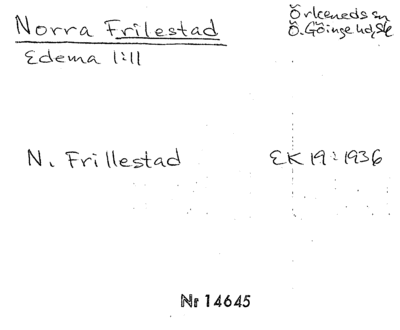 Norra Frilestad
Örkeneds sn
Ö. Göinge hd, Sk
Edema 1:11
N. Frillestad EK 19:1936
Nr 14645